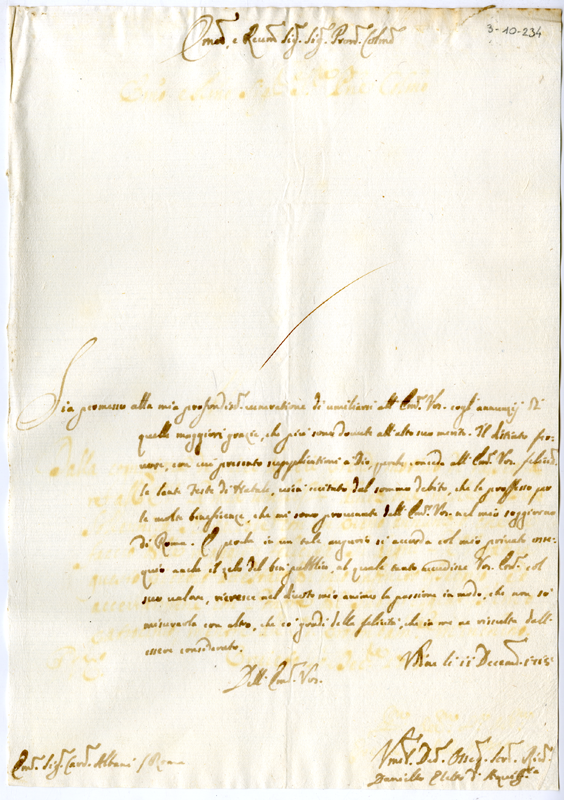 3-10-234
Em.o e Reu.mo Sig.r Sig.r Pron. Colmo
Sia permesso alla mia profondis.a ueneratione di umiliarsi all' Em.a Vos. cogl' annunzij di
quelle maggiori grazie, che più sono douute all' alto suo merito. Il diuoto
con cui presento supplicationi a Dio, perche conceda all' Em.a Vos. felicis.e
le sante Feste di Natale, uien eccitato dal sommo debito, che le professo per
le molte beneficenze, che mi sono prouenute dall' Em.a Vos. nel mio soggiorno
di Roma. E perche in un tale augurio si accorda col mio priuato osse-
quio anche il zelo del ben publico, al quale tanto accudisce Vos. Em.a col
suo ualore, riesce nel diuoto mio animo la passione in modo, che non so
misurarla con altro, che co' gradi della felicità, che in me ne risulta dall'
essere considerato.
Vdine li 11 Decemb. 1715
Dell' Em.a Vos.
Em.o Sig.r Card. Albani / Roma
Vmil. Deu. Osseq. Ser. Rid.
Daniello Eletto d'Aquil.a